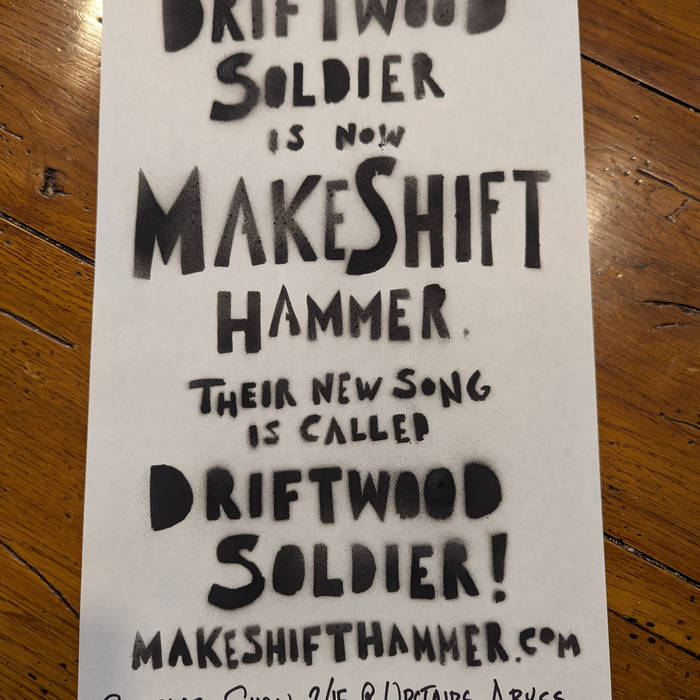 DRIFTWOOD
SOLDIER
IS NOW
MAKESHIFT
HAMMER.
THEIR NEW SONG
IS CALLED
DRIFTWOOD
SOLDIER!
MAKESHIFTHAMMER.COM
SHOW 2/15 @ UPSTAIRS ABYSS